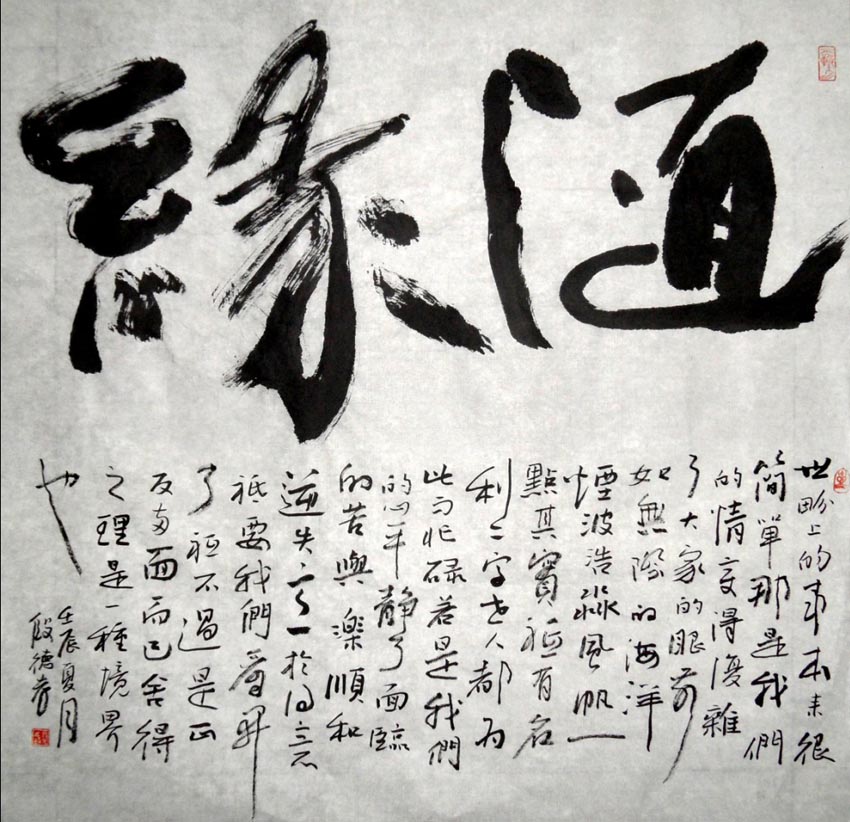 隨緣
世畍上的事本来很
簡單那是我們
的情变得復雜
了大家的眼前
如無際的海洋
煙波浩淼風帆一
點其實祗有名
利二字世人都为
此而忙碌若是我們
的心平静了面臨
的苦與樂順和
逆失於得
祗要我們看開
了祗不過是正
反两面而已舍得
之理是一種境界
也
壬辰夏月
段德